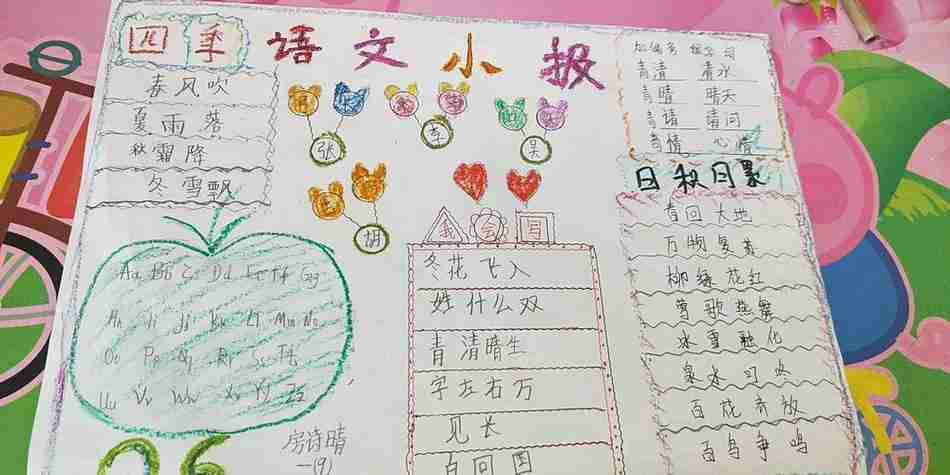 四季
语文小报
春风吹
夏雨落
秋霜降
冬雪飘
张
李
吴
胡
青清 清水
青晴 晴天
青请 请问
青情 心情
日积月累
春回大地
万物复苏
柳绿花红
莺歌燕舞
冰雪融化
泉水叮咚
百花齐放
百鸟争鸣
我会写
冬花飞入
姓什么双
青清晴生
字左右万
见长
百回国
Aa Bb Cc Dd Ee Ff Gg
Hh Ii Jj Kk Ll Mm Nn
Oo Pp Qq Rr Ss Tt
Uu Vv Ww Xx Yy Zz
26
房诗晴
一(9)